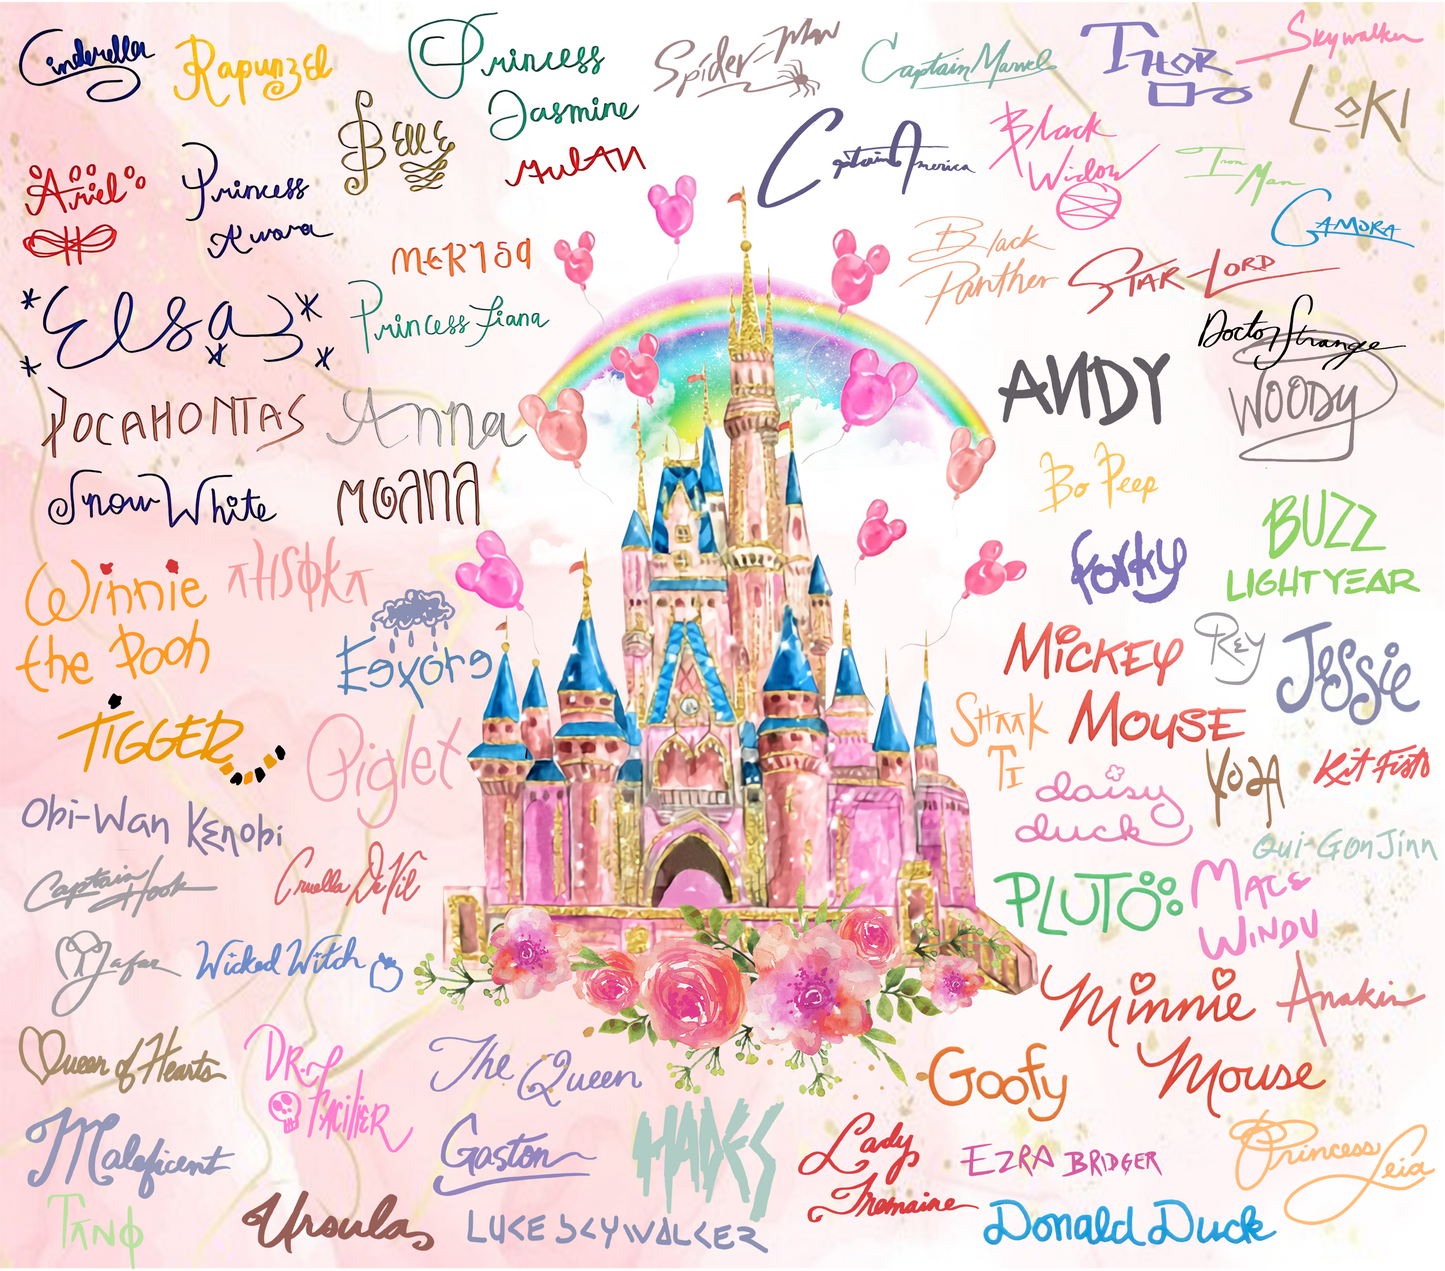 Cinderella
Rapunzel
Princess
Jasmine
Spider-Man
Captain Marvel
THOR
Skywalker
LOKI
BELLE
MULAN
Captain America
Black
Widow
Iron
Man
Ariel
Princess
Aurora
MERIDA
Black
Panther
STAR-LORD
GAMORA
Elsa
Princess Tiana
Doctor Strange
ANDY
WOODY
POCAHONTAS
Anna
Snow White
MOANA
Bo Peep
BUZZ
LIGHTYEAR
Forky
Winnie
the Pooh
AHSOKA
Eeyore
MICKEY
MOUSE
REY
Jessie
TIGGER
Piglet
SHAAK
TI
YODA
Kit Fisto
daisy
duck
Obi-Wan Kenobi
Qui-Gon Jinn
Captain Hook
Cruella De Vil
PLUTO
MACE
WINDU
Jafar
Wicked Witch
Minnie
Mouse
Anakin
Queen of Hearts
DR.
FACILIER
The Queen
Goofy
Maleficent
Gaston
HADES
Lady
Tremaine
EZRA BRIDGER
Princess
Leia
TANO
Ursula
LUKE SKYWALKER
Donald Duck